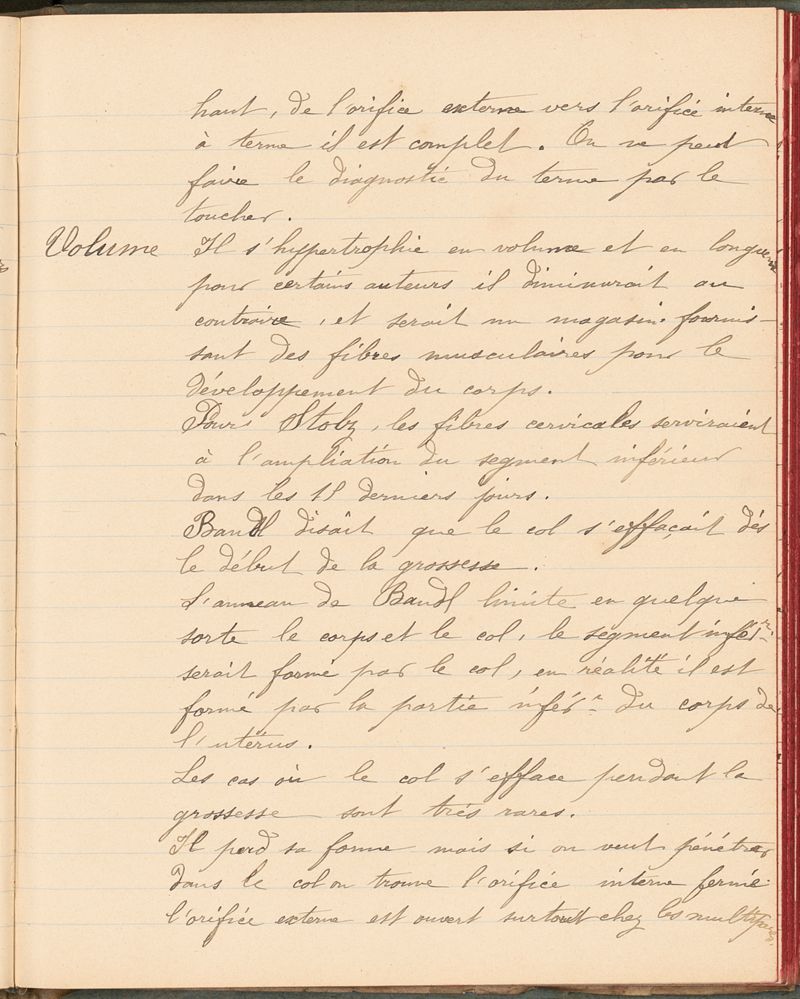 haut, de l'orifice externe vers l'orifice interne
à terme il est complet. On ne peut
faire le diagnostic du terme par le
toucher.
Volume Il s'hypertrophie en volume et en longueur
pour certains auteurs il diminurait au
contraire, et serait un magasin fournis-
sant des fibres musculaires pour le
développement du corps.
Pour Stolz, les fibres cervicales serviraient
à l'ampliation du segment inférieur
dans les 15 derniers jours.
Bandl disait que le col s'effaçait dès
le début de la grossesse.
L'anneau de Bandl limite en quelque
sorte le corps et le col, le segment infér.r
serait formé par le col, en réalité il est
formé par la partie infér.e du corps de
l'utérus.
Les cas où le col s'efface pendant la
grossesse sont très rares.
Il perd sa forme mais si on veut pénétrer
dans le col on trouve l'orifice interne fermé.
l'orifice externe est ouvert surtout chez les multipares.